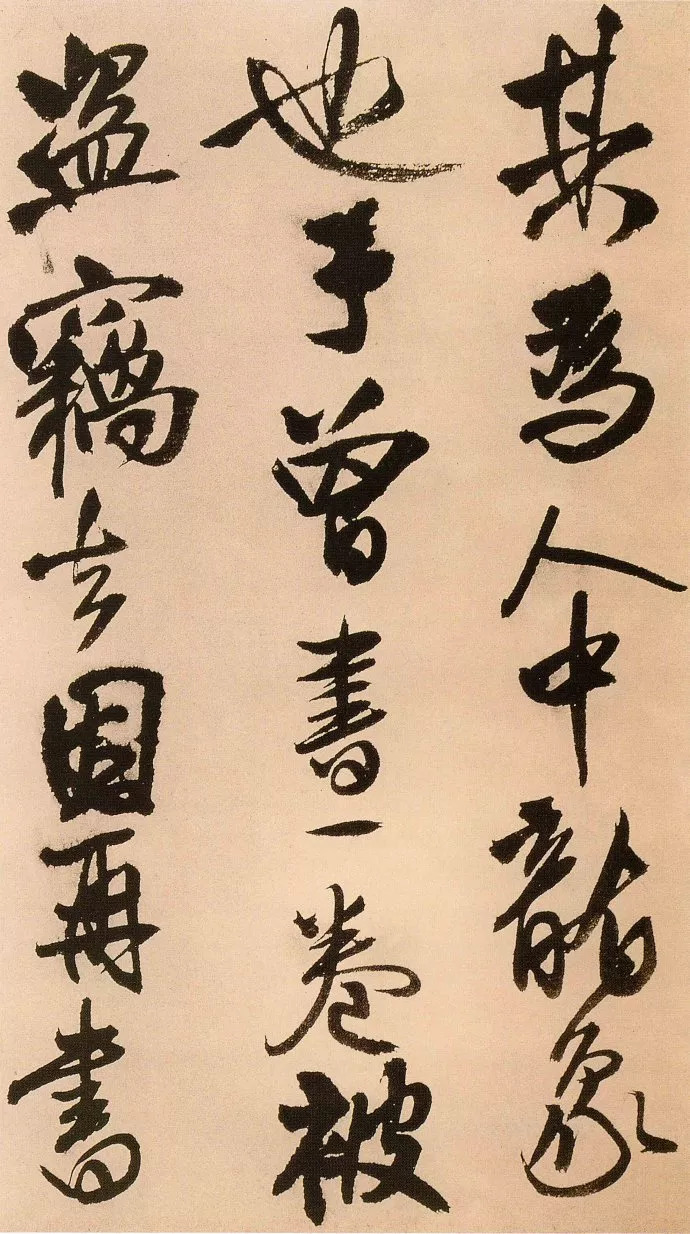 某爲人中龍象
也予曾書一卷被
盗竊去因再書